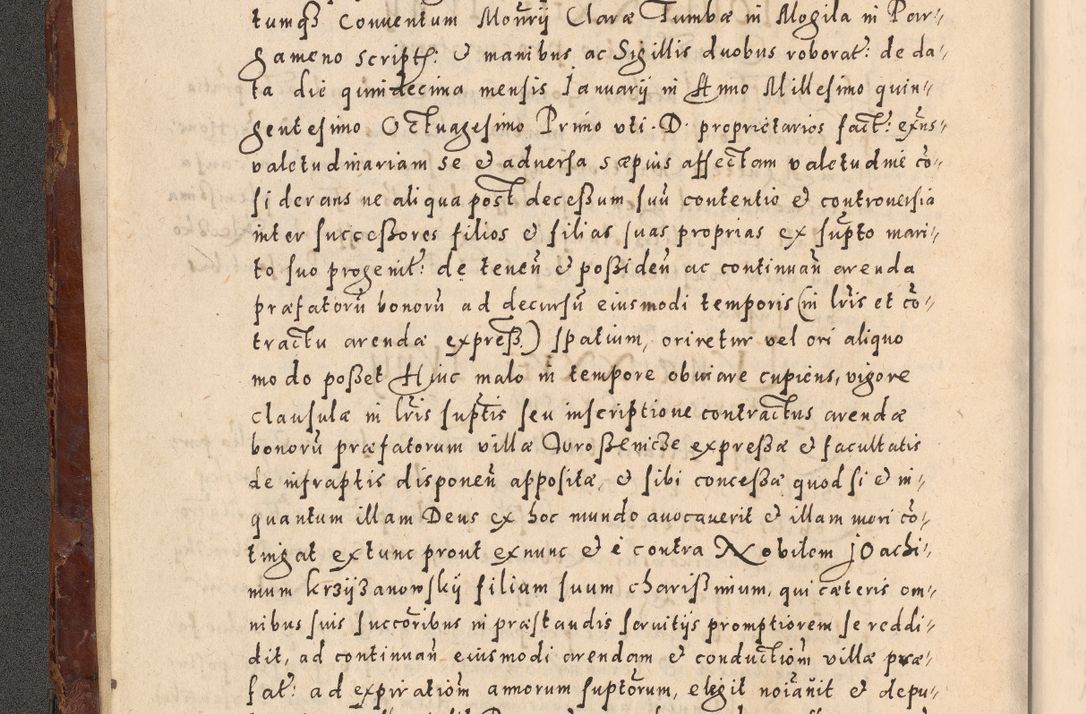 tumqȝ Conventum Mõnrij Claræ Tumbæ in Mogila in Par-
gameno script: & manibus ac Sigillis duobus roborat: de da-
ta die quindecima mensis Januarij in Anno Millesimo quin-
gentesimo Octuagesimo Primo uti D. proprietarios fact: exñs
valetudinariam se & adversa sæpius affectam valetudine cõ-
siderans ne aliqua post decessum suũ contentio & controversia
inter successores filios & filias suas proprias ex supto mari-
to suo progenit: de tenen̄ & possiden̄ ac continuan̄ arenda
præfatorũ bonorũ ad decursũ eiusmodi temporis (in lr̃is et cõ-
tractu arendæ express:) spatium, oriretur vel ori aliquo
modo posset Hinc malo in tempore obviare cupiens, vigore
clausulæ in lr̃is suptis seu inscriptione contractus arendæ
bonorũ præfatorum villæ expressæ & facultatis
de infraptis disponen̄ appositæ, & sibi concessæ quod si & in-
quantum illam Deus ex hoc mundo avocaverit & illam mori cõ-
tingat ex tunc prout ex nunc & e contra Nobilem JOachi-
mum krzijzanowskij filium suum charissimum, qui cæteris om-
nibus suis succõribus in præstandis servitijs promptiorem se reddi-
dit, ad continuan̄ eiusmodi arendam & conductiõm villæ præ-
fat: ad expiratiõm annorum suptõrum, elegit noiãnit & depu-